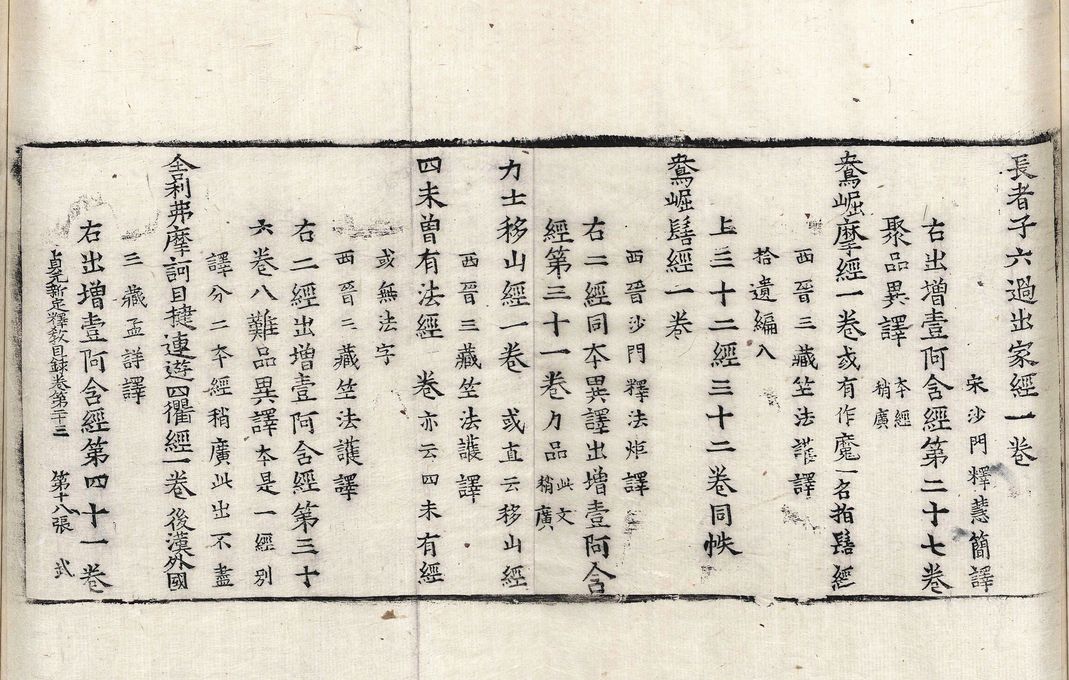 長者子六過出家經一卷
宋沙門釋慧簡譯
右出增壹阿含經第二十七卷
聚品異譯 夲經稍廣
鴦崛摩經一卷或有作魔一名指髻經
西晉三藏竺法護譯
拾遺編入
上三十二經三十二卷同帙
鴦崛髻經一卷
西晉沙門釋法炬譯
右二經同夲異譯出增壹阿含
經第三十一卷力品 此文稍廣
力士移山經一卷 或直云移山經
西晉三藏竺法護譯
四未曽有法經 卷亦云四未有經
或無法字
西晉三藏竺法護譯
右二經出增壹阿含經第三十
六卷八難品異譯夲是一經別
譯分二夲經稍廣此出不盡
舍利弗摩訶目揵連遊四衢經一卷後漢外國
三藏孟詳譯
右出增壹阿含經第四十一卷
貞元新定釋教目録卷第三十三 第十八張 武